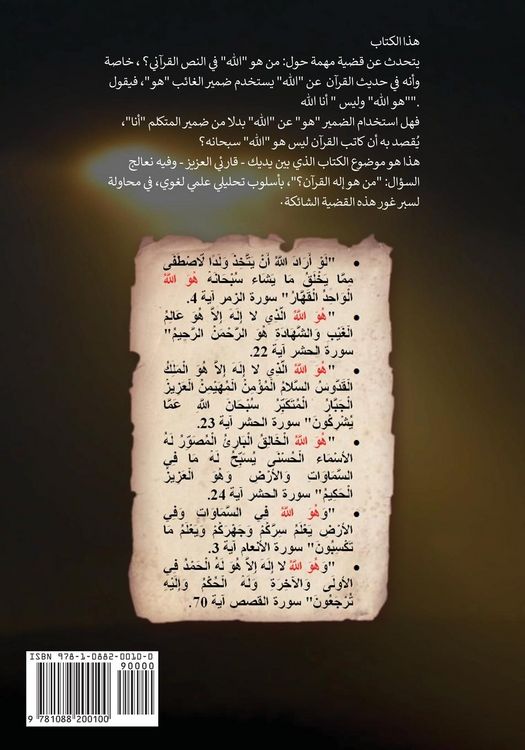 هذا الكتاب
يتحدث عن قضية مهمة حول: من هو "الله" في النص القرآني؟ ، خاصة
وأنه في حديث القرآن عن "الله" يستخدم ضمير الغائب "هو"، فيقول
."“هو الله" وليس " أنا الله
فهل استخدام الضمير "هو" عن "الله" بدلا من ضمير المتكلم "أنا"،
يُقصد به أن كاتب القرآن ليس هو "الله" سبحانه؟
هذا هو موضوع الكتاب الذي بين يديك - قارئي العزيز - وفيه نعالج
السؤال: "من هو إله القرآن؟"، بأسلوب تحليلي علمي لغوي، في محاولة
لسبر غور هذه القضية الشائكة.
• "لَوْ أَرَادَ اللَّهُ أَنْ يَتَّخِذَ وَلَدًا لَاصْطَفَى
مِمَّا يَخْلُقُ مَا يَشَاءُ سُبْحَانَهُ هُوَ اللَّهُ
الْوَاحِدُ الْقَهَّارُ" سورة الزمر آية 4.
• "هُوَ اللَّهُ الَّذِي لَا إِلَهَ إِلَّا هُوَ عَالِمُ
الْغَيْبِ وَالشَّهَادَةِ هُوَ الرَّحْمَنُ الرَّحِيمُ"
سورة الحشر آية 22.
• "هُوَ اللَّهُ الَّذِي لَا إِلَهَ إِلَّا هُوَ الْمَلِكُ
الْقُدُّوسُ السَّلَامُ الْمُؤْمِنُ الْمُهَيْمِنُ الْعَزِيزُ
الْجَبَّارُ الْمُتَكَبِّرُ سُبْحَانَ اللَّهِ عَمَّا
يُشْرِكُونَ" سورة الحشر آية 23.
• "هُوَ اللَّهُ الْخَالِقُ الْبَارِئُ الْمُصَوِّرُ لَهُ
الْأَسْمَاءُ الْحُسْنَى يُسَبِّحُ لَهُ مَا فِي
السَّمَاوَاتِ وَالْأَرْضِ وَهُوَ الْعَزِيزُ
الْحَكِيمُ" سورة الحشر آية 24.
• "وَهُوَ اللَّهُ فِي السَّمَاوَاتِ وَفِي
الْأَرْضِ يَعْلَمُ سِرَّكُمْ وَجَهْرَكُمْ وَيَعْلَمُ مَا
تَكْسِبُونَ" سورة الأنعام آية 3.
• "وَهُوَ اللَّهُ لَا إِلَهَ إِلَّا هُوَ لَهُ الْحَمْدُ فِي
الْأُولَى وَالْآخِرَةِ وَلَهُ الْحُكْمُ وَإِلَيْهِ
تُرْجَعُونَ" سورة القصص آية 70.
ISBN 978-1-0882-0010-0
90000
9 781088 200100